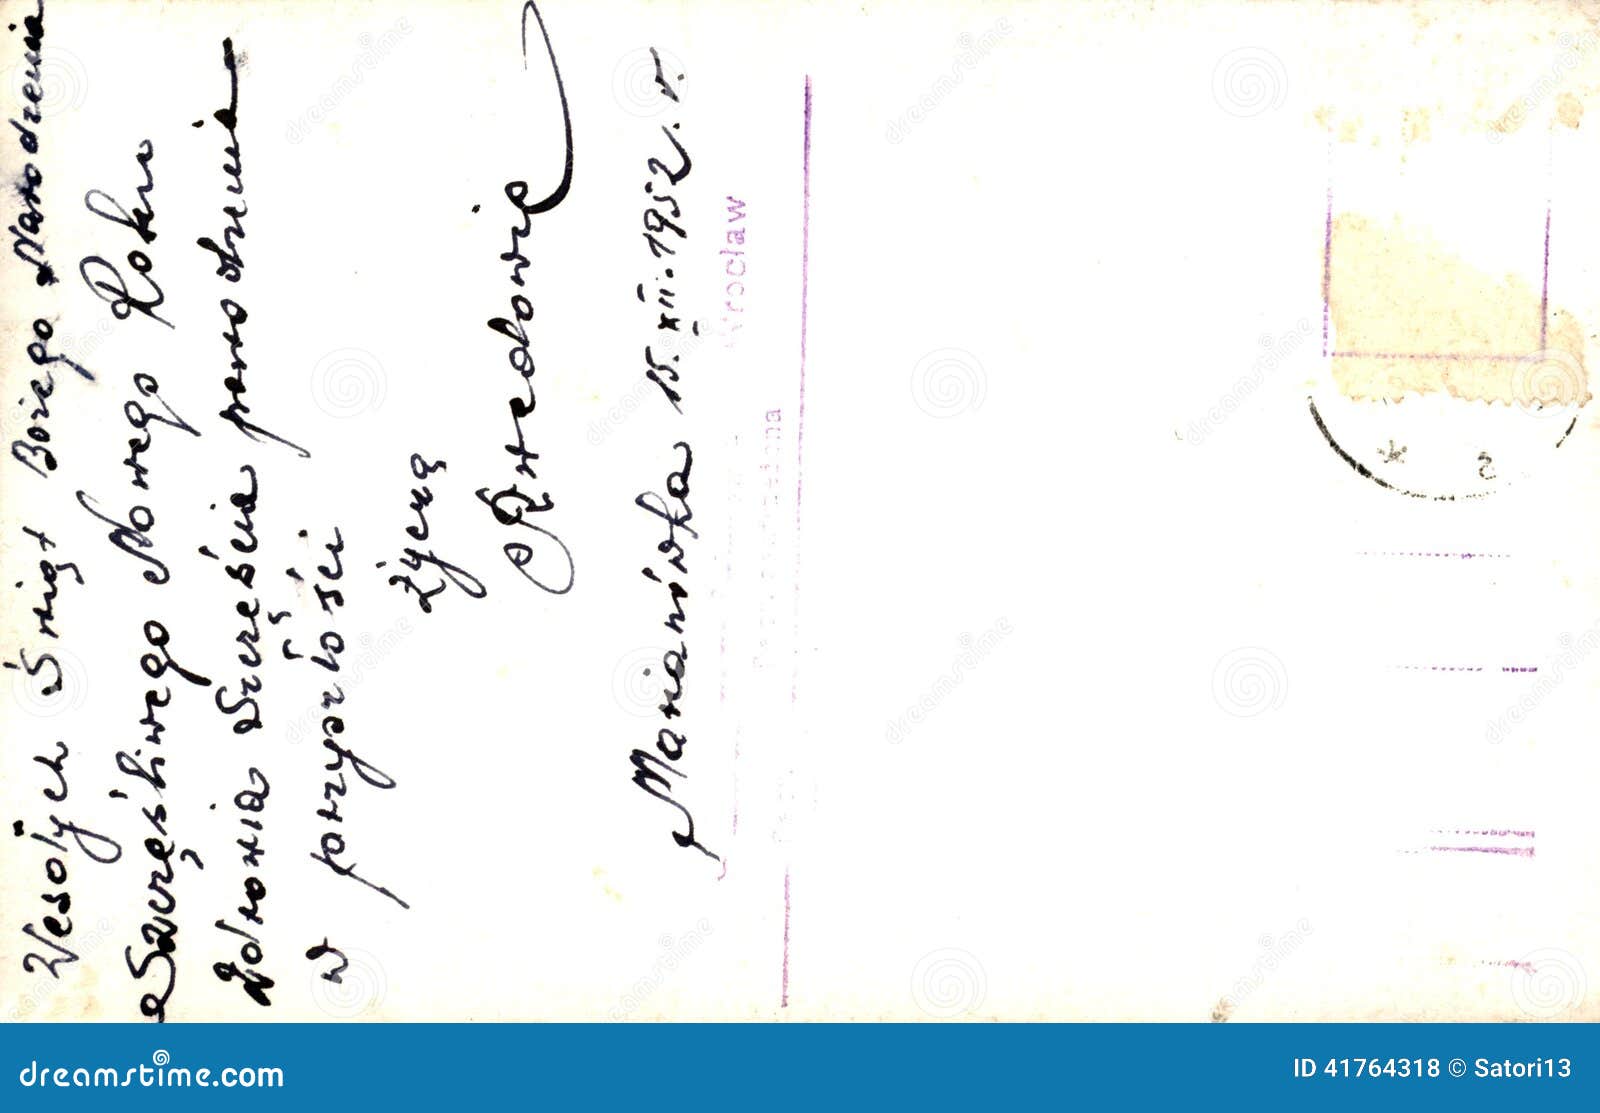 Wesołych Świąt Bożego Narodzenia
Szczęśliwego Nowego Roku
Zdrowia Szczęścia powodzenia
w przyszłości
życzą
Marianówka 15.XII.1952.r.
Wrocław
dreamstime.com
ID 41764318 © Satori13